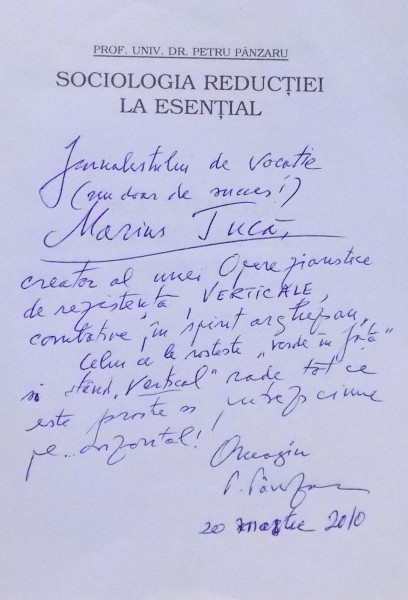 PROF. UNIV. DR. PETRU PÂNZARU
SOCIOLOGIA REDUCȚIEI
LA ESENȚIAL
Jurnalistului de vocație
(nu doar de succes!)
Marius Tucă,
creator al unei Opere ziaristice
de rezistență, VERTICALE,
combative, în spirit arghezian,
Celui ce le rostește „verde în față”
și stând „Vertical” rade tot ce
este prostie și putreziciune
pe.. orizontal!
Omagiu
P. Pânzaru
20 martie 2010